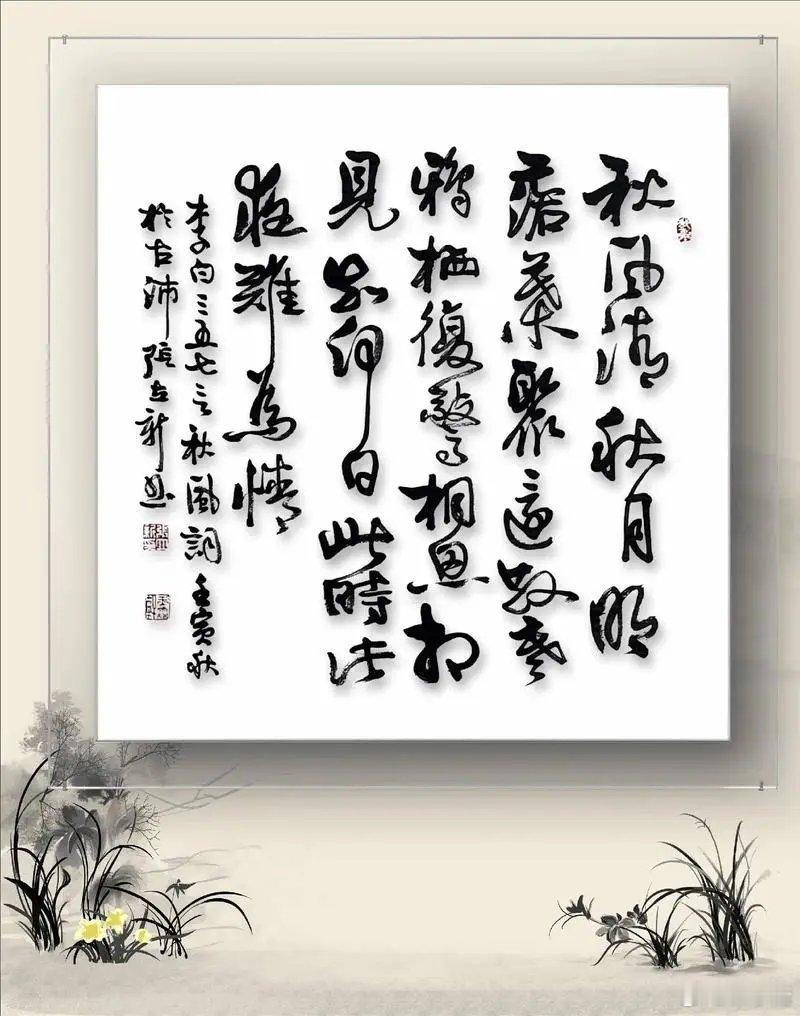 秋风清秋月明
落葉聚還散寒
鴉栖復驚相思相
見知何日此時此
夜難為情
李白三五七言秋風詞壬寅秋
於古沛張立新書